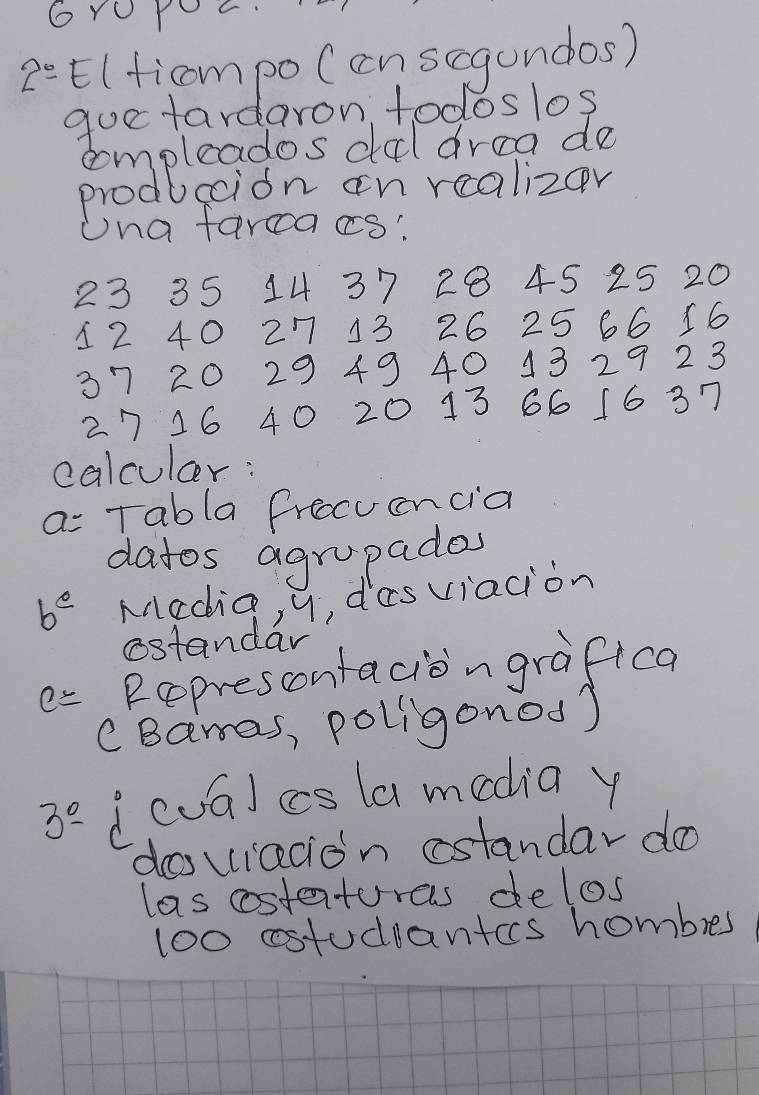 2º El tiempo (en segundos)
que tardaron todos los
empleados del área de
producción en realizar
una tarea es:
23 35 14 37 28 45 25 20
12 40 27 13 26 25 66 16
37 20 29 49 40 13 29 23
27 16 40 20 13 66 16 37
calcular:
a= Tabla frecuencia
datos agrupados
bº Media, y, desviación
estandár
c= Representación gràfica
(Barras, polígonos)
3º ¿cuál es la media y
desviación estandar de
las estaturas de los
100 estudiantes hombres